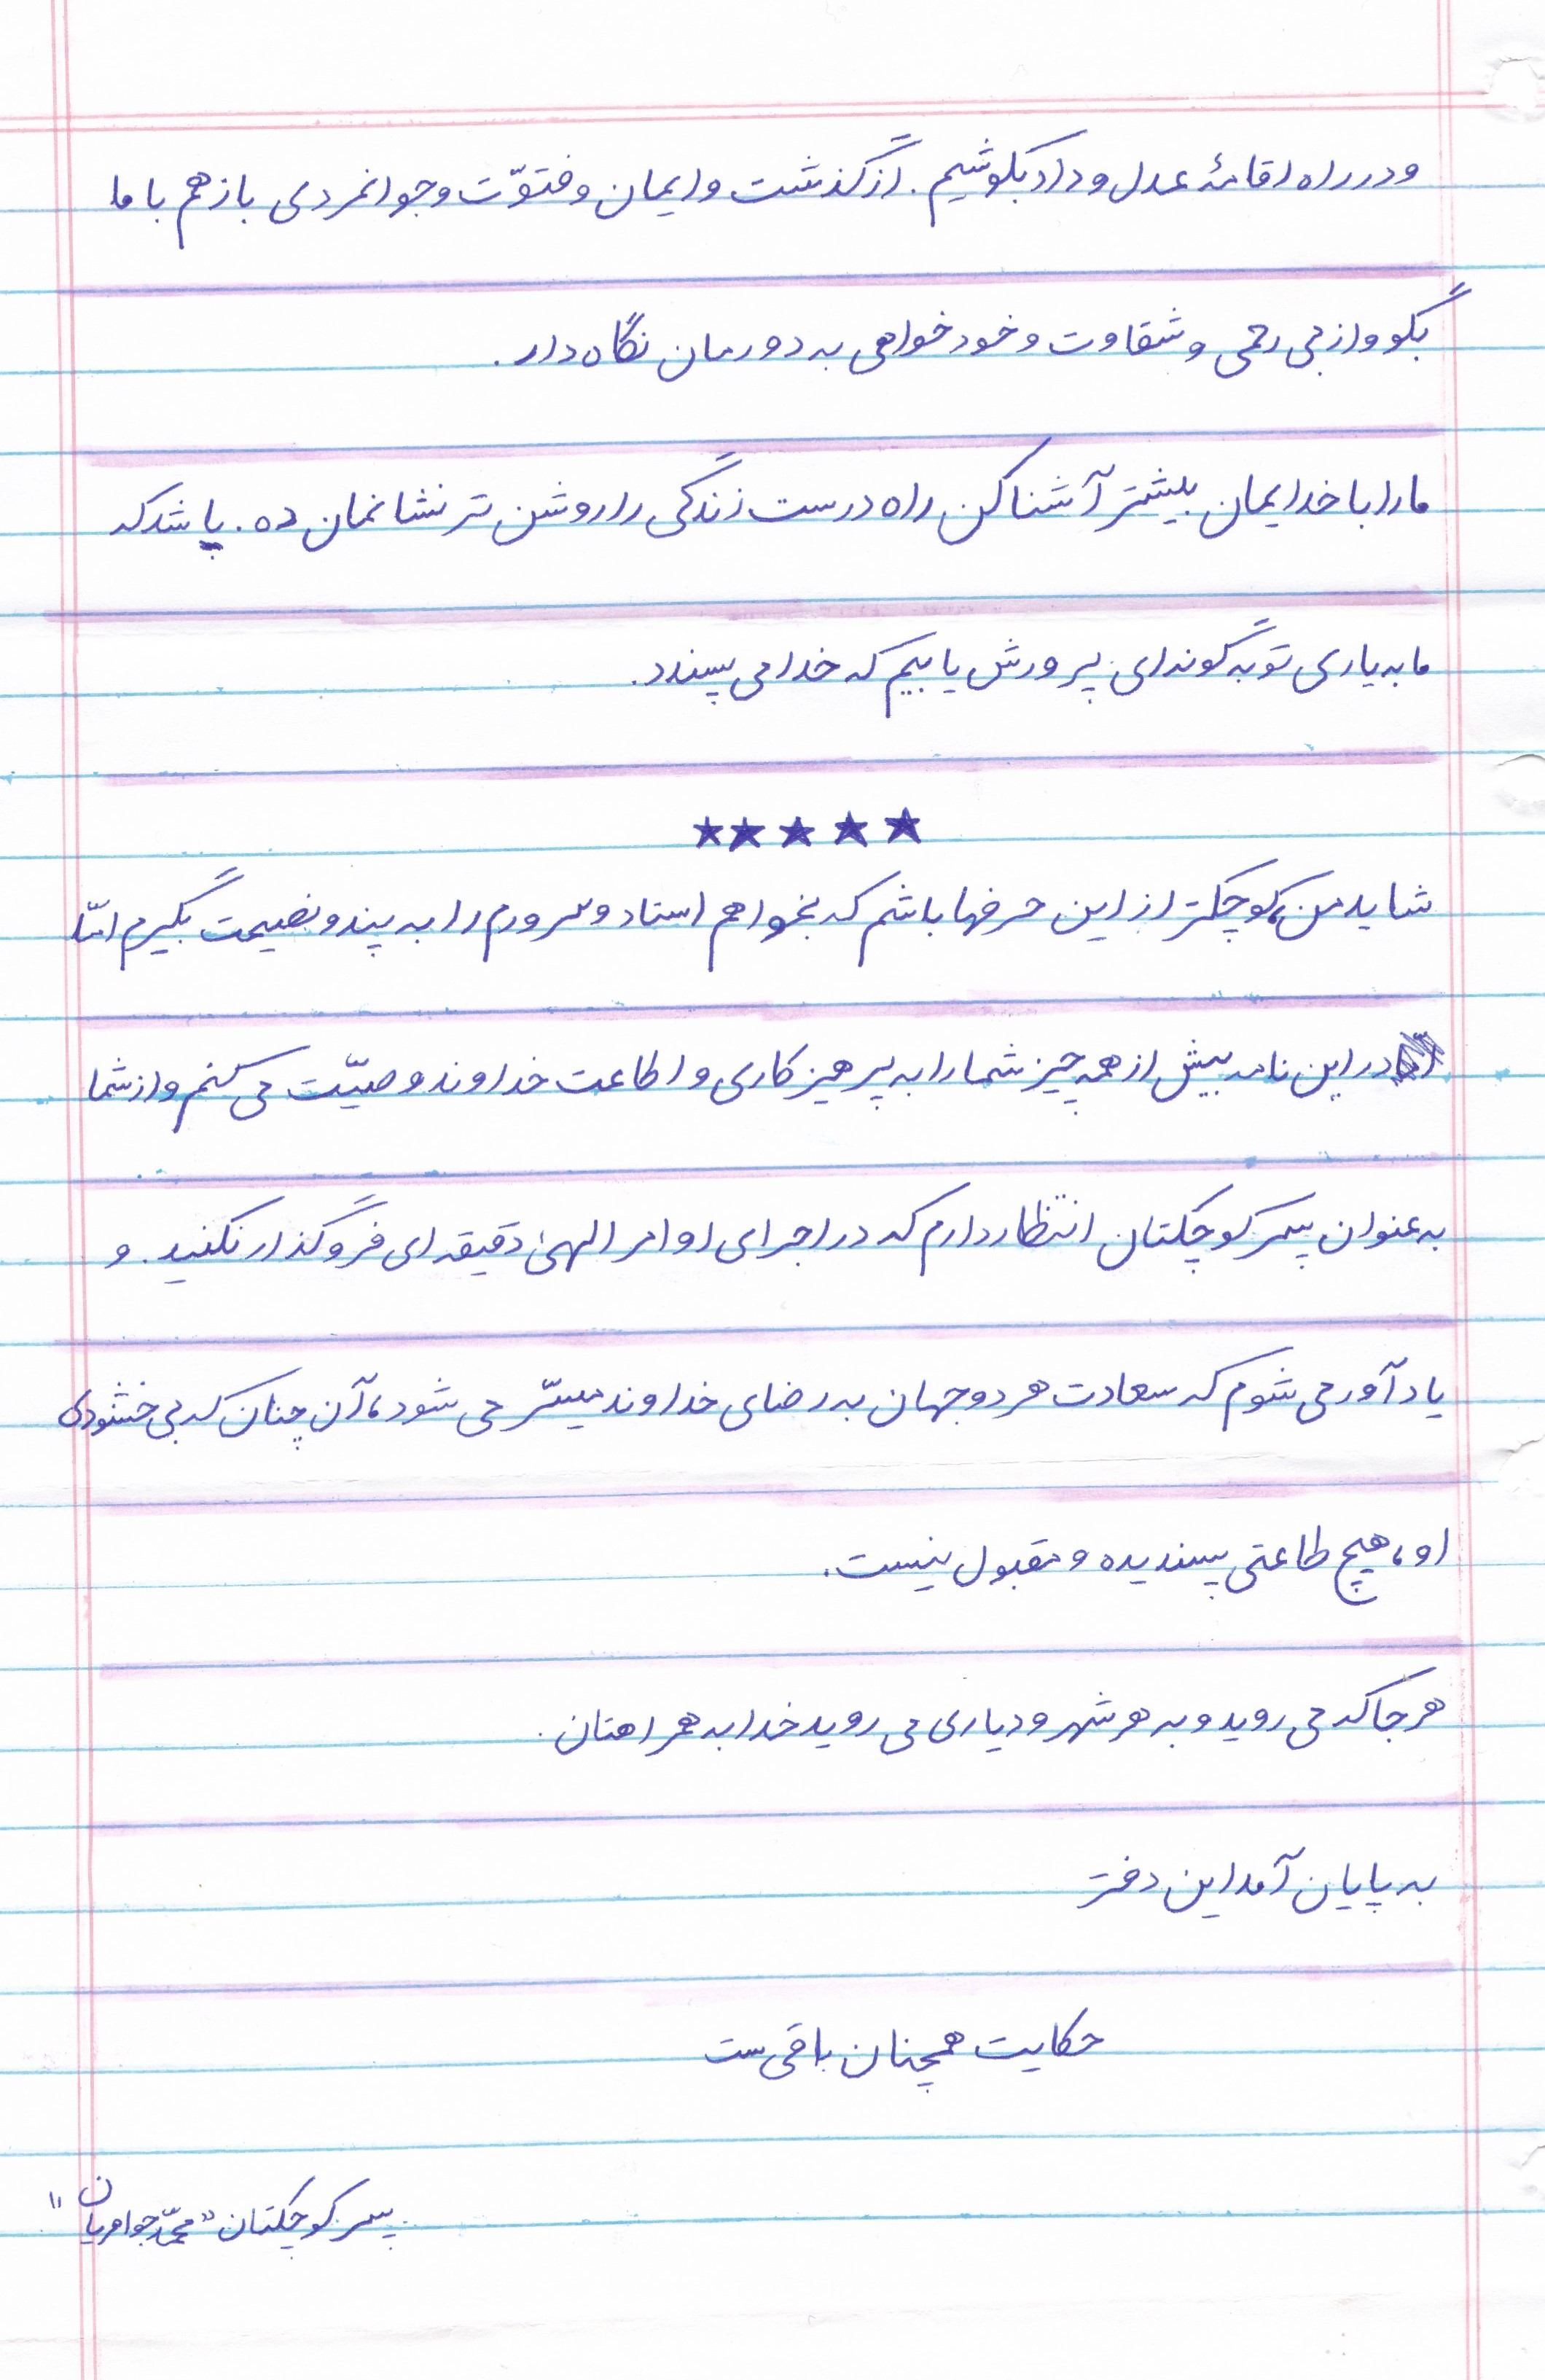 و در راه اقامهٔ عدل و داد بکوشیم. از گذشت و ایمان و فتوّت و جوانمردی باز هم با ما
بگو و از بی رحمی و شقاوت و خودخواهی به دورمان نگاه دار.
ما را با خدایمان بیشتر آشنا کن راه درست زندگی را روشن تر نشانمان ده. باشد که
ما به یاری تو به گونه ای پرورش یابیم که خدا می پسندد.
★★★★★
شاید من کوچکتر از این حرفها باشم که بخواهم استاد و سرورم را به پند و نصیحت بگیرم امّا
در این نامه بیش از همه چیز شما را به پرهیزکاری و اطاعت خداوند وصیّت می کنم و از شما
به عنوان پسر کوچکتان انتظار دارم که در اجرای اوامر الهی دقیقه ای فروگذار نکنید. و
یادآور می شوم که سعادت هر دو جهان به رضای خداوند میسّر می شود، آن چنان که بی خشنودی
او، هیچ طاعتی پسندیده و مقبول نیست.
هر جا که می روید و به هر شهر و دیاری می روید خدا به همراهتان.
به پایان آمد این دفتر
حکایت همچنان باقی ست
پسر کوچکتان "محمّد جواهریان"